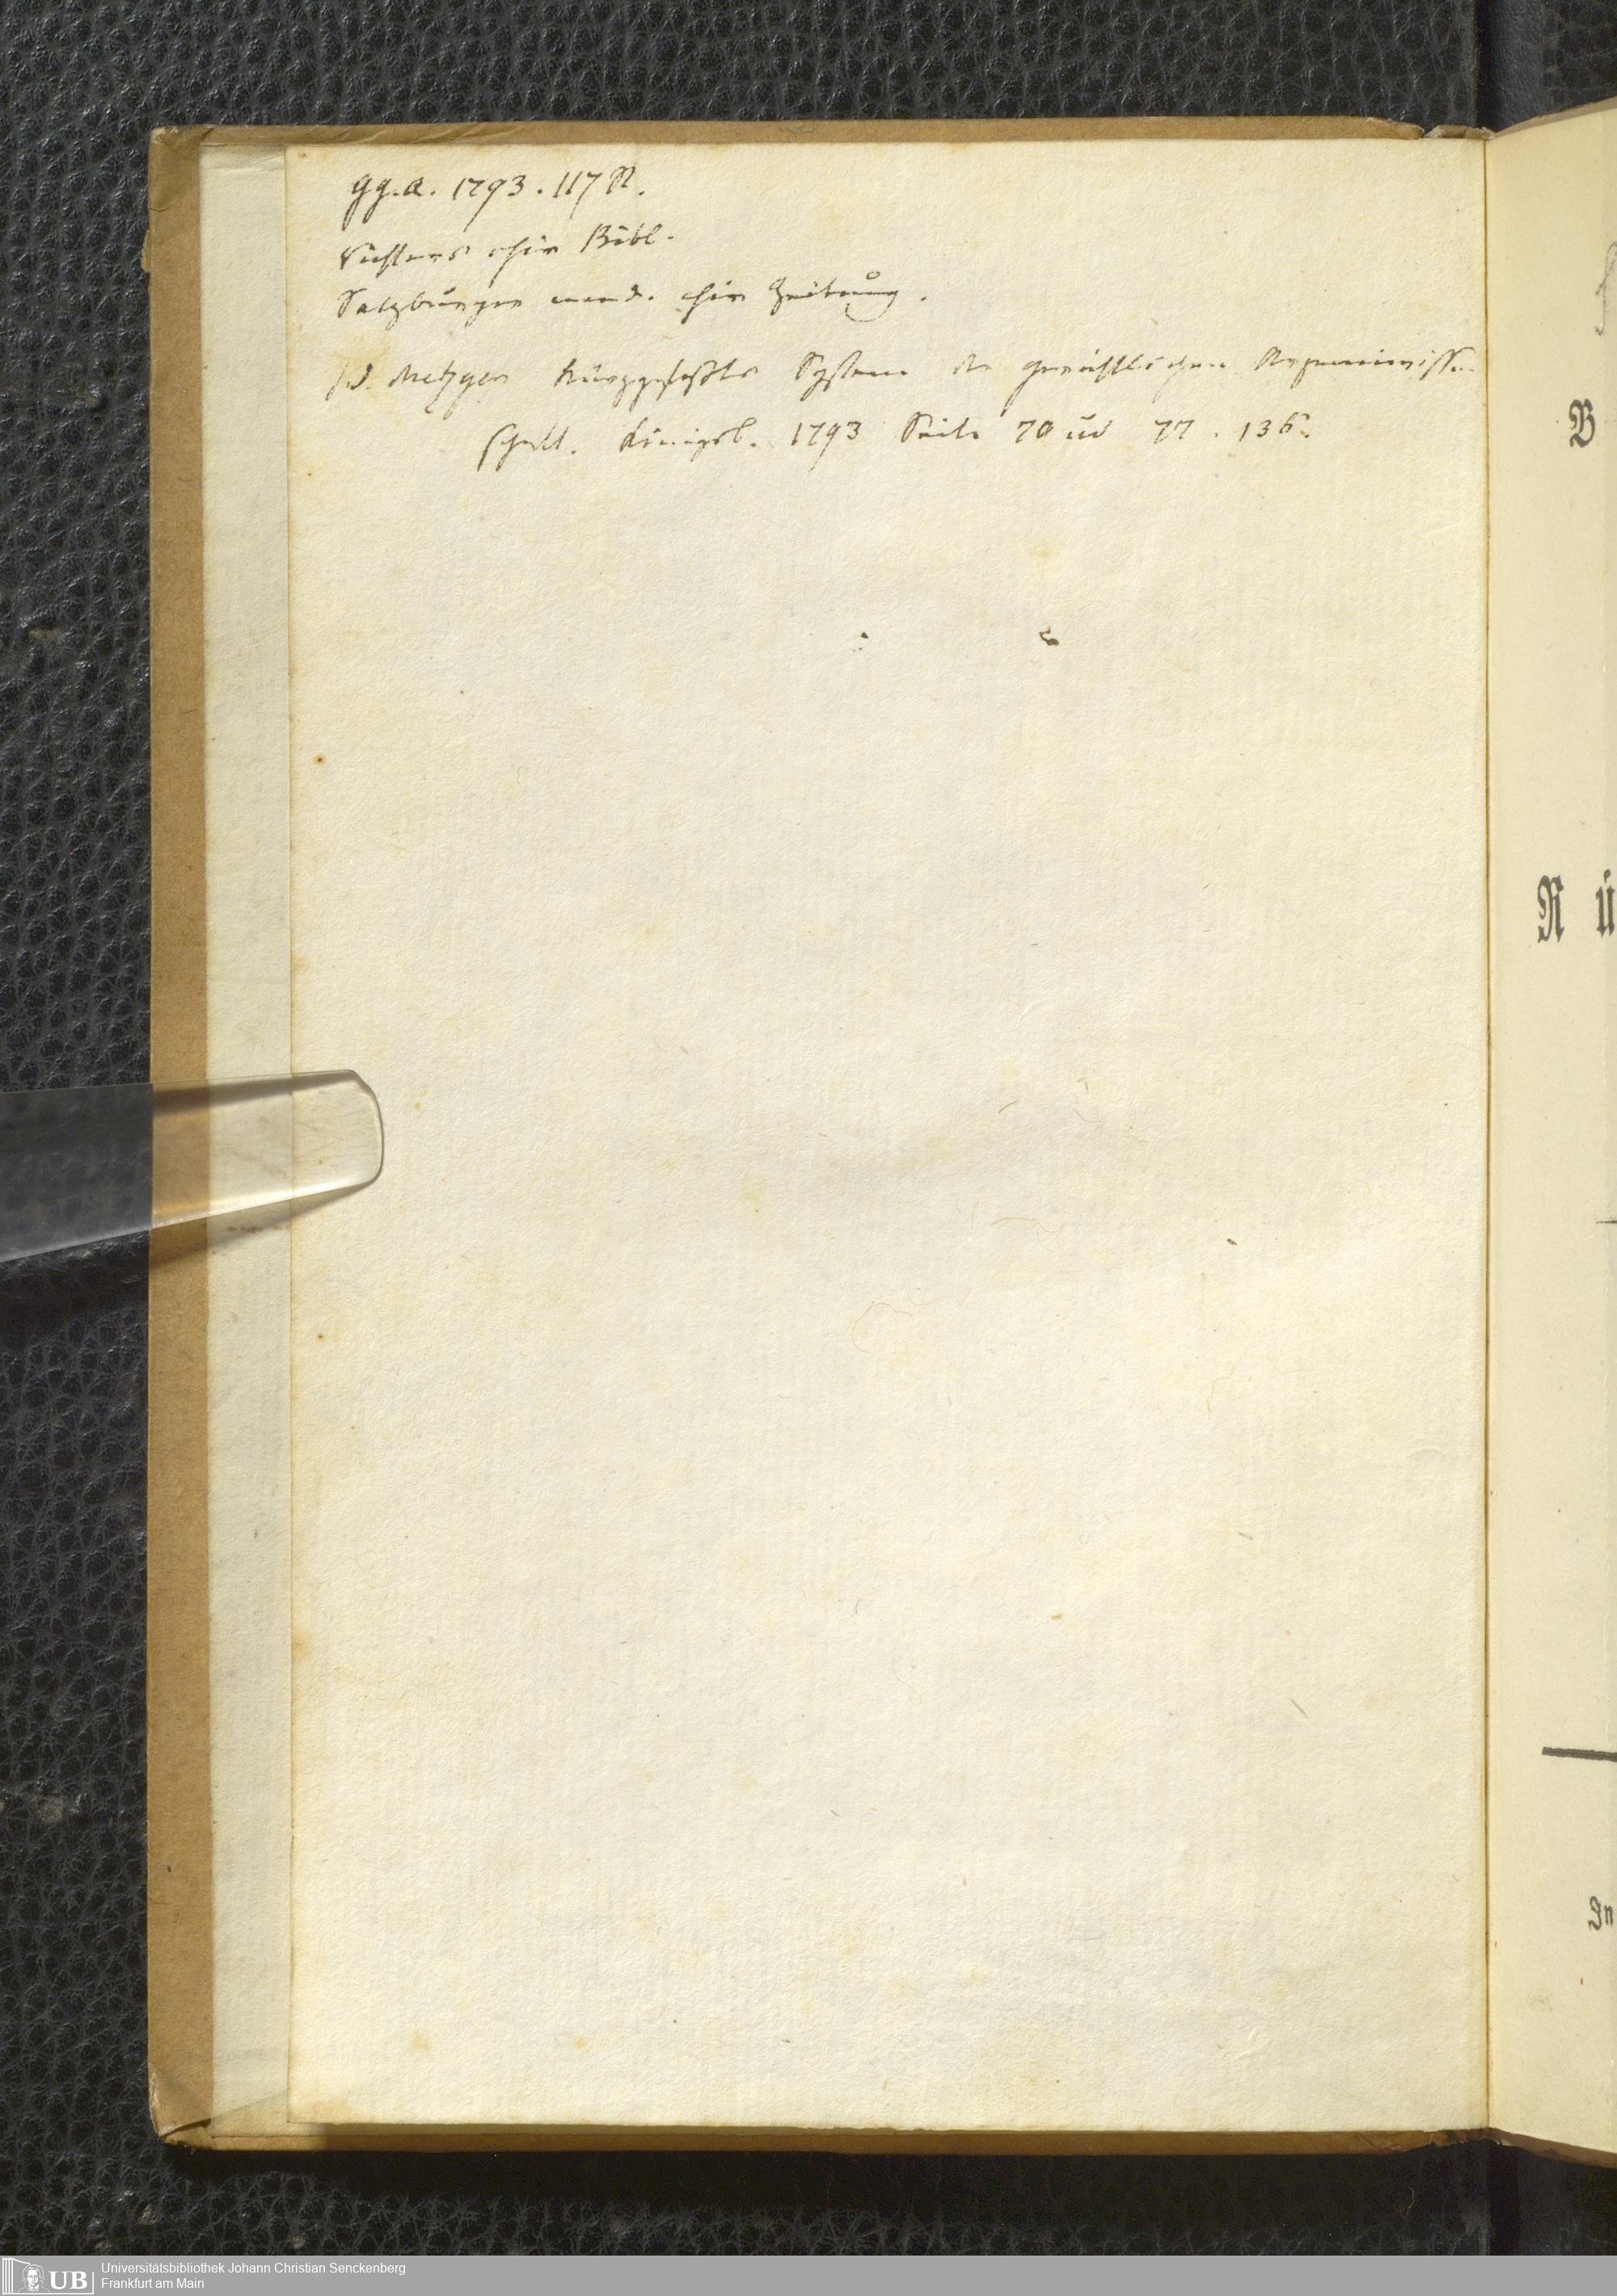 gg. A. 1793. 117 St.
Richters chir Bibl.
Salzburger med. chir Zeitung.
J.D. Metzger kurzgefaßtes System der gerichtlichen Arzneiwissen-
schaft. Königsb. 1793 Seite 70 und 77. 136.
B
R ü
In
UB
Universitätsbibliothek Johann Christian Senckenberg
Frankfurt am Main